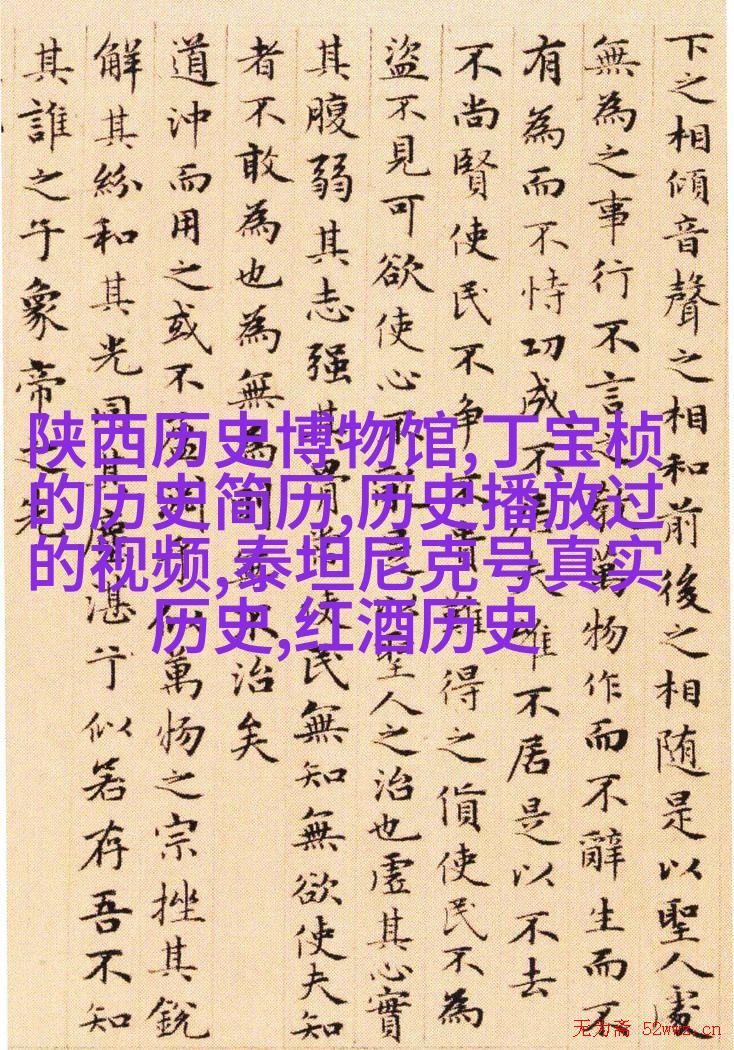 下之相傾音聲之相和前後之相随是以聖人處
無為之事行不言之教萬物作而不辭生而不
有為而不恃功成不居夫唯不居是以不去
不尚賢使民不争不貴難得之貨使民不為
盜不見可欲使心不亂是以聖人之治也虛其心實
其腹弱其志强其骨常使民無知無欲使夫知
者不敢為也為無為則無不治矣
道沖而用之或不萬物之宗挫其銳
解其紛和其光同其塵湛兮似若存吾不知
其誰之子象帝之先
陕西历史博物馆,丁宝桢
的历史简历,历史播放过
的视频,泰坦尼克号真实
历史,红酒历史
无为斋 52wwz.cn